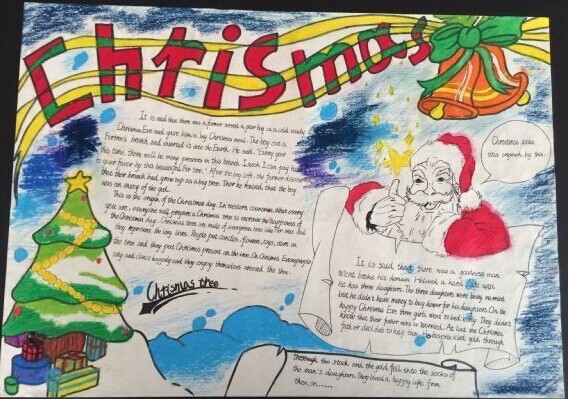 Christmas
It is said that there was a farmer served a poor boy in a cold snowy
Christmas Eve and gave him a big Christmas meal. The boy cut a
branch and inserted it into the Earth. He said, "Every year
this time, there will be many presents in this branch. I wish I can pay back
to your favor by this beautiful Fir tree." After the boy left, the farmer discover
that the branch had grow up as a big tree. Then he realized that the boy
was an envoy of the god.
This is the origin of the Christmas day. In western countries. What every
you are, everyone will prepare a Christmas tree to increase the happiness of
the Christmas day. Christmas trees are made of evergreen tree like
they represent the long lives. People put candles, flowers, toys, stars on
the tree and they put Christmas present on the tree. On Christmas Eve, people
sing and dance happily and they enjoy themselves around the tree.
Chrismas thee
Christmas socks
this origined by this.
It is said that there was a goodness man
Went broke his domain. Helived a hard life and
he has three daughters. The three daughters were being married
but he didn't have money to buy dower for his daughters. On the
happy Christmas Eve three girls went to bed early. They didn't
know that their father was so worried. At last the Christmas
father decided to help them. He gold through
through the stack and the gold fell into the socks of
the man's daughters. They loved a happy life from
then on......